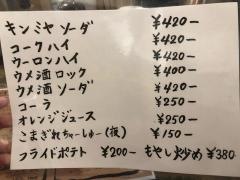 キンミヤソーダ ¥420-
コークハイ ¥420-
ウーロンハイ ¥420-
ウメ酒ロック ¥400-
ウメ酒ソーダ ¥420-
コーラ ¥250-
オレンジジュース ¥250-
こまぎれちゃーしゅー(夜) ¥150-
フライドポテト ¥200- もやし炒め ¥380